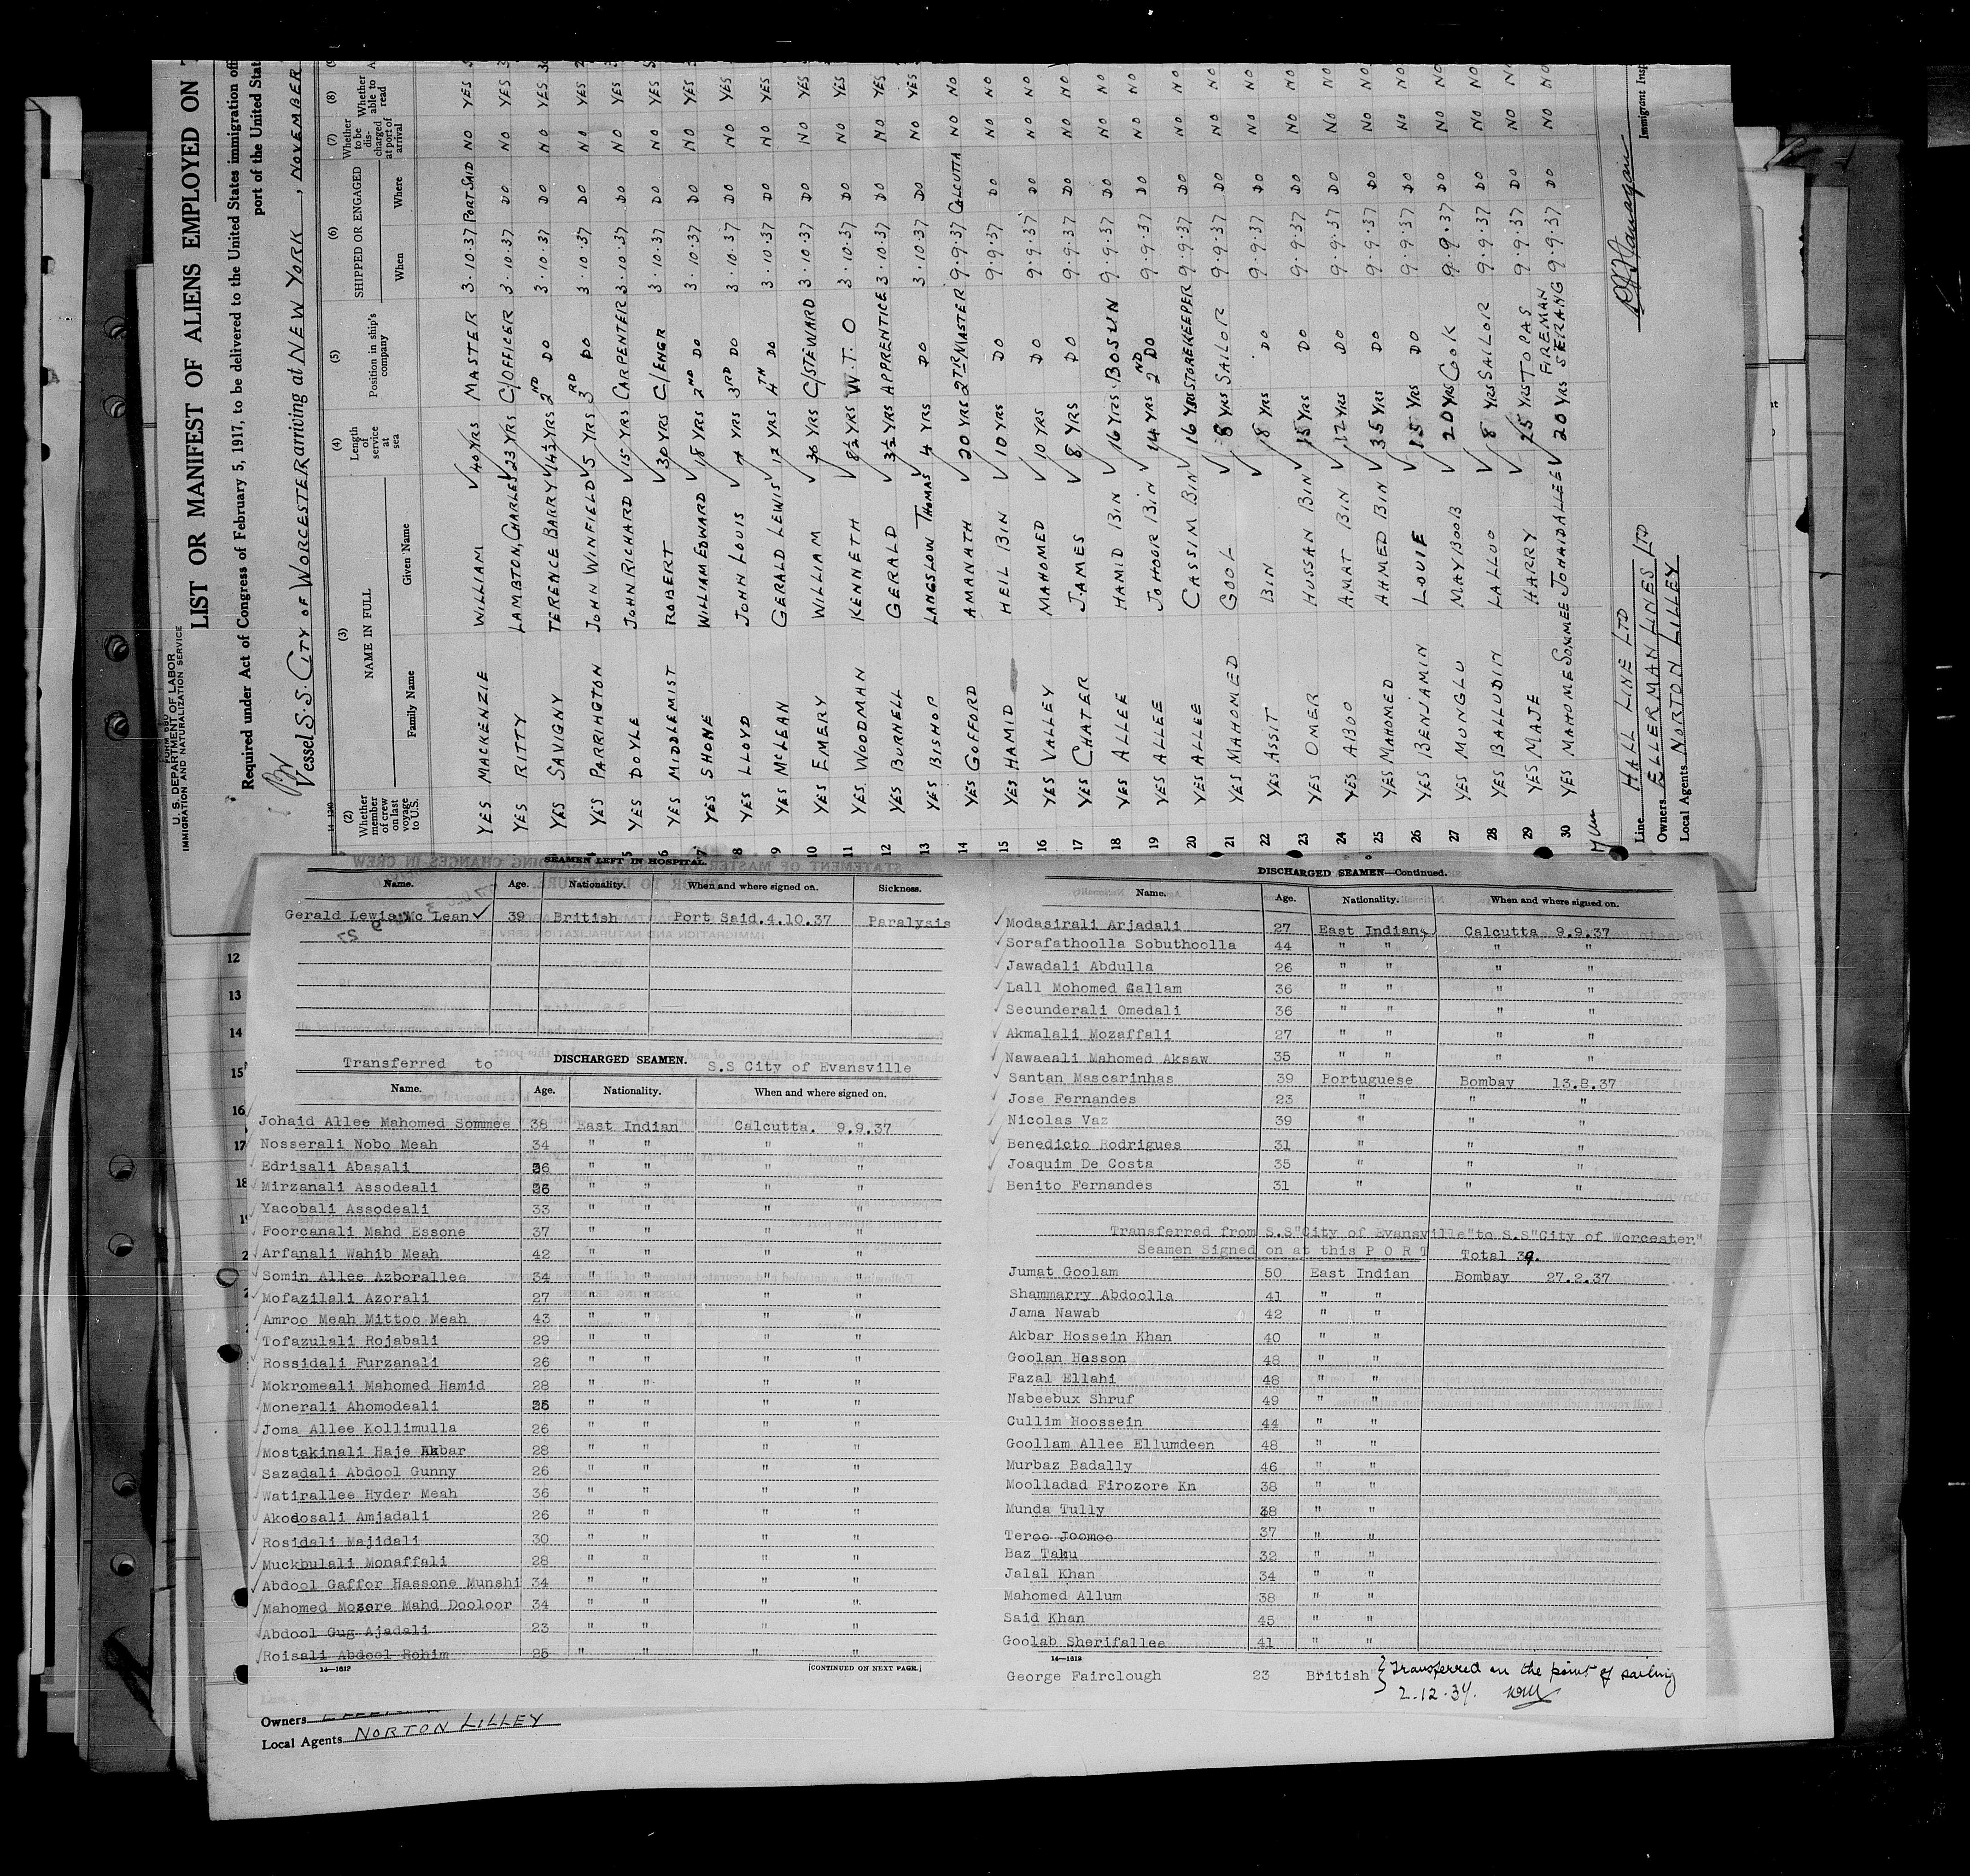 FORM 680
U. S. DEPARTMENT OF LABOR
IMMIGRATION AND NATURALIZATION SERVICE
LIST OR MANIFEST OF ALIENS EMPLOYED ON
Required under Act of Congress of February 5, 1917, to be delivered to the United States immigration
port of the United
Vessel S.S. CITY OF WORCESTER arriving at NEW YORK, NOVEMBER
14-1240
(2) Whether member of crew on last voyage to U.S.
(3) NAME IN FULL
Family Name Given Name
(4) Length of service at sea
(5) Position in ship's company
(6) SHIPPED OR ENGAGED
When Where
(7) Whether to be discharged at port of arrival
(8) Whether able to read
YES MACKENZIE WILLIAM 40 YRS MASTER 3.10.37 PORT SAID NO YES
YES RITTY LAMBTON, CHARLES 23 YRS C/OFFICER 3.10.37 DO NO YES
YES SAVIGNY TERENCE BARRY 14½ YRS 2ND DO 3.10.37 DO NO YES
4 YES PARRINGTON JOHN WINFIELD 5 YRS 3RD DO 3.10.37 DO NO YES
5 YES DOYLE JOHN RICHARD 15 YRS CARPENTER 3.10.37 DO NO YES
6 YES MIDDLEMIST ROBERT 30 YRS C/ENGR 3.10.37 DO NO YES
7 YES SHONE WILLIAM EDWARD 18 YRS 2ND DO 3.10.37 DO NO YES
8 YES LLOYD JOHN LOUIS 7 YRS 3RD DO 3.10.37 DO NO YES
9 YES McLEAN GERALD LEWIS 12 YRS 4TH DO 3.10.37 DO NO YES
10 YES EMERY WILLIAM 36 YRS C/STEWARD 3.10.37 DO NO YES
11 YES WOODMAN KENNETH 8½ YRS W.T.O 3.10.37 DO NO YES
12 YES BURNELL GERALD 3½ YRS APPRENTICE 3.10.37 DO NO YES
13 YES BISHOP LANGSLOW THOMAS 4 YRS DO 3.10.37 DO NO YES
14 YES GOFFORD AMANATH 20 YRS 9.9.37 CALCUTTA NO NO
15 YES HAMID HEIL BIN 10 YRS DO 9.9.37 DO NO NO
16 YES VALLEY MAHOMED 10 YRS DO 9.9.37 DO NO NO
17 YES CHATER JAMES 8 YRS DO 9.9.37 DO NO NO
18 YES ALLEE HAMID BIN 16 YRS BOSUN 9.9.37 DO NO NO
19 YES ALLEE JOHOOR BIN 14 YRS 2ND DO 9.9.37 DO NO NO
20 YES ALLEE CASSIM BIN 16 YRS STOREKEEPER 9.9.37 DO NO NO
21 YES MAHOMED GOOL 8 YRS SAILOR 9.9.37 DO NO NO
22 YES ASSIT BIN 8 YRS DO 9.9.37 DO NO NO
23 YES OMER HUSSAN BIN 15 YRS DO 9.9.37 DO NO NO
24 YES ABOO AMAT BIN 12 YRS DO 9.9.37 DO NO NO
25 YES MAHOMED AHMED BIN 35 YRS DO 9.9.37 DO NO NO
26 YES BENJAMIN LOUIE 15 YRS DO 9.9.37 DO NO NO
27 YES MONGLU MAYBOOB 20 YRS COOK 9.9.37 DO NO NO
28 YES BALLUDIN LALLOO 8 YRS SAILOR 9.9.37 DO NO NO
29 YES MAJE HARRY 25 YRS TOPAS 9.9.37 DO NO NO
30 YES MAHOME SOMMEE JOHAIDALLEE 20 YRS FIREMAN SERANG 9.9.37 DO NO NO
Line HALL LINE LTD
Owners ELLERMAN LINES LTD
Local Agents NORTON LILLEY
Immigrant
SEAMEN LEFT IN HOSPITAL.
Name. Age. Nationality. When and where signed on. Sickness.
Gerald Lewis Mc Lean 39 British Port Said.4.10.37 Paralysis
12
13
14
15
16
17
18
Transferred to DISCHARGED SEAMEN. S.S City of Evansville
Name. Age. Nationality. When and where signed on.
Johaid Allee Mahomed Sommee 38 East Indian Calcutta. 9.9.37
Nosserali Nobo Meah 34 " " " "
Edrisali Abasali 26 " " " "
Mirzanali Assodeali " " " "
Yacobali Assodeali 33 " " " "
Foorcanali Mahd Essone 37 " " " "
Arfanali Wahib Meah 42 " " " "
Somin Allee Azborallee 34 " " " "
Mofazilali Azorali 27 " " " "
Amroo Meah Mittoo Meah 43 " " " "
Tofazulali Rojabali 29 " " " "
Rossidali Furzanali 26 " " " "
Mokromeali Mahomed Hamid 28 " " " "
Monerali Ahomodeali " " " "
Joma Allee Kollimulla 26 " " " "
Mostakinali Haje Akbar 28 " " " "
Sazadali Abdool Gunny 26 " " " "
Watirallee Hyder Meah 36 " " " "
Akodosali Amjadali 26 " " " "
Rosidali Majidali 30 " " " "
Muckbulali Monaffali 28 " " " "
Abdool Gaffor Hassone Munshi 34 " " " "
Mahomed Mozere Mahd Dooloor 34 " " " "
Abdool Gug Ajadali 23 " " " "
Roisali Abdool Rohim 25 " " " "
14—1612
[CONTINUED ON NEXT PAGE.]
DISCHARGED SEAMEN—Continued.
Name. Age. Nationality. When and where signed on.
Modasirali Arjadali 27 East Indian Calcutta 9.9.37
Sorafathoolla Sobuthoolla 44 " " " "
Jawadali Abdulla 26 " " " "
Lall Mohomed Gallam 36 " " " "
Secunderali Omedali 36 " " " "
Akmalali Mozaffali 27 " " " "
Nawaeali Mahomed Aksaw 35 " " " "
Santan Mascarinhas 39 Portuguese Bombay 13.8.37
Jose Fernandes 23 " " "
Nicolas Vaz 39 " " "
Benedicto Rodrigues 31 " " "
Joaquim De Costa 35 " " "
Benito Fernandes 31 " " "
Transferred from S.S"City of Evansville"to S.S"City of Worcester"
Seamen Signed on at this P O R T Total 39.
Jumat Goolam 50 East Indian Bombay 27.2.37
Shammarry Abdoolla 41 " "
Jama Nawab 42 " "
Akbar Hossein Khan 40 " "
Goolan Hasson 48 " "
Fazal Ellahi 48 " "
Nabeebux Shruf 49 " "
Cullim Hoossein 44 " "
Goollam Allee Ellumdeen 48 " "
Murbaz Badally 46 " "
Moolladad Firozore Kn 38 " "
Munda Tully 38 " "
Teroo Joomoo 37 " "
Baz Taku 32 " "
Jalal Khan 34 " "
Mahomed Allum 38 " "
Said Khan 45 " "
Goolab Sherifallee 41 " "
14—1612
George Fairclough 23 British } Transferred on the point of sailing
2.12.37.
Owners
Local Agents NORTON LILLEY